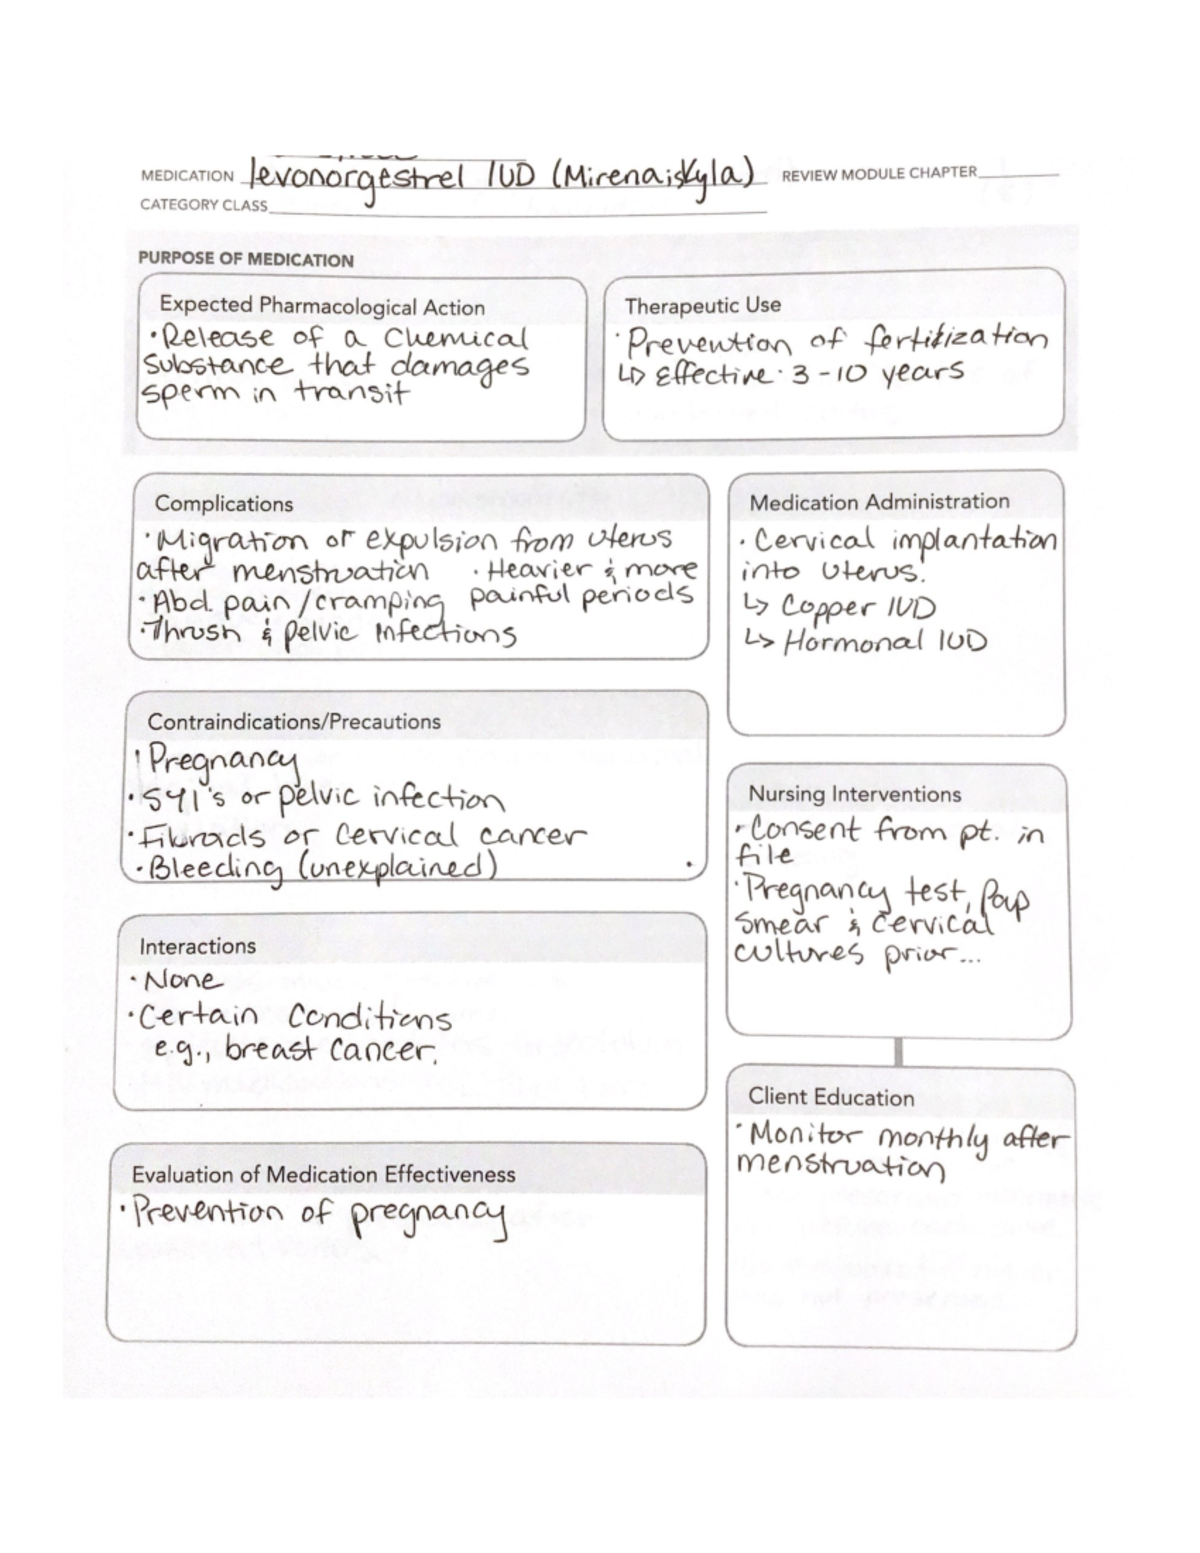 MEDICATION levonorgestrel IUD (Mirena; Skyla) REVIEW MODULE CHAPTER
CATEGORY CLASS
PURPOSE OF MEDICATION
Expected Pharmacological Action
·Release of a Chemical
Substance that damages
sperm in transit
Therapeutic Use
·Prevention of fertilization
↳ Effective· 3-10 years
Complications
·Migration or expulsion from uterus
after menstruation ·Heavier & more
·Abd. pain/cramping painful periods
·Thrush & pelvic infections
Medication Administration
·Cervical implantation
into uterus.
↳ Copper IUD
↳ Hormonal IUD
Contraindications/Precautions
·Pregnancy
·STI's or pelvic infection
·Fibroids or Cervical cancer
·Bleeding (unexplained)
Nursing Interventions
·Consent from pt. in
file
·Pregnancy test, Pap
smear & cervical
cultures prior...
Interactions
·None
·Certain Conditions
e.g., breast cancer.
Client Education
·Monitor monthly after
menstruation
Evaluation of Medication Effectiveness
·Prevention of pregnancy